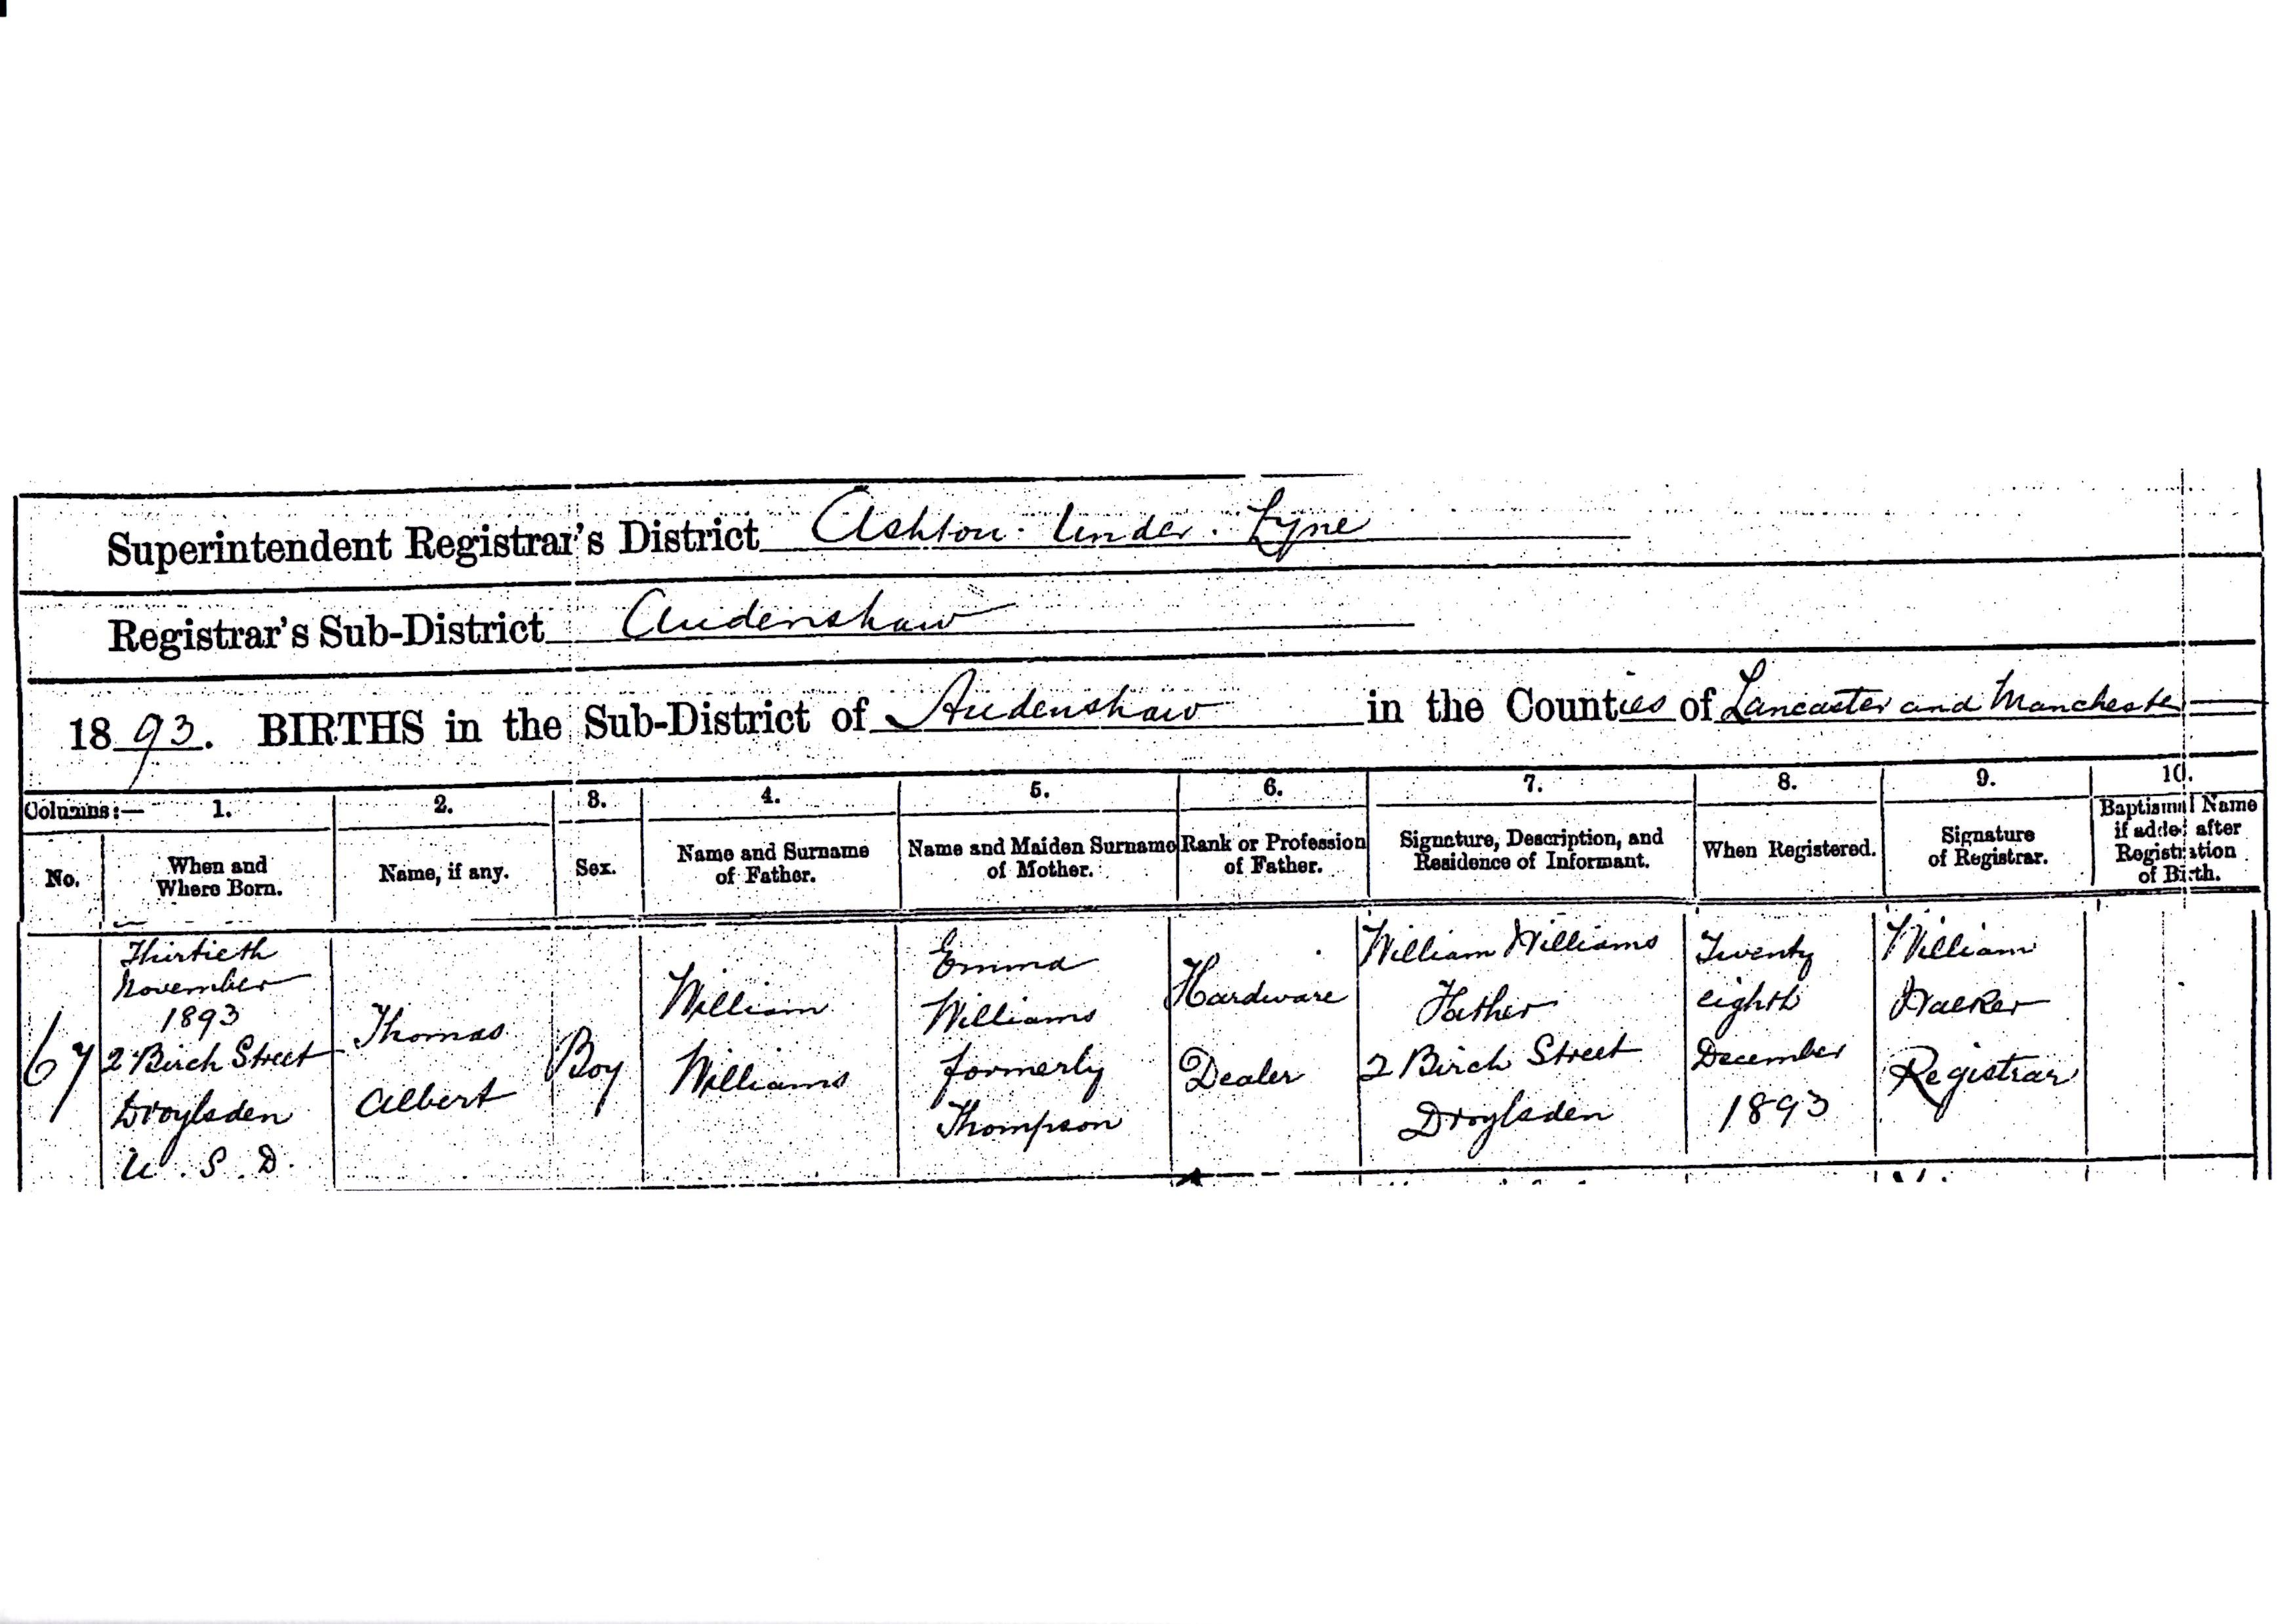 Superintendent Registrar's District Ashton. Under. Lyne
Registrar's Sub-District Audenshaw
1893. BIRTHS in the Sub-District of Audenshaw in the Counties of Lancaster and Manchester
Columns:— 1. 2. 3. 4. 5. 6. 7. 8. 9. 10.
No.
When and
Where Born.
Name, if any.
Sex.
Name and Surname
of Father.
Name and Maiden Surname
of Mother.
Rank or Profession
of Father.
Signature, Description, and
Residence of Informant.
When Registered.
Signature
of Registrar.
Baptismal Name
if added after
Registration
of Birth.
67
Thirtieth
November
1893
2 Birch Street
Droylsden
U. S. D.
Thomas
Albert
Boy
William
Williams
Emma
Williams
formerly
Thompson
Hardware
Dealer
William Williams
Father
2 Birch Street
Droylsden
Twenty
eighth
December
1893
William
Walker
Registrar